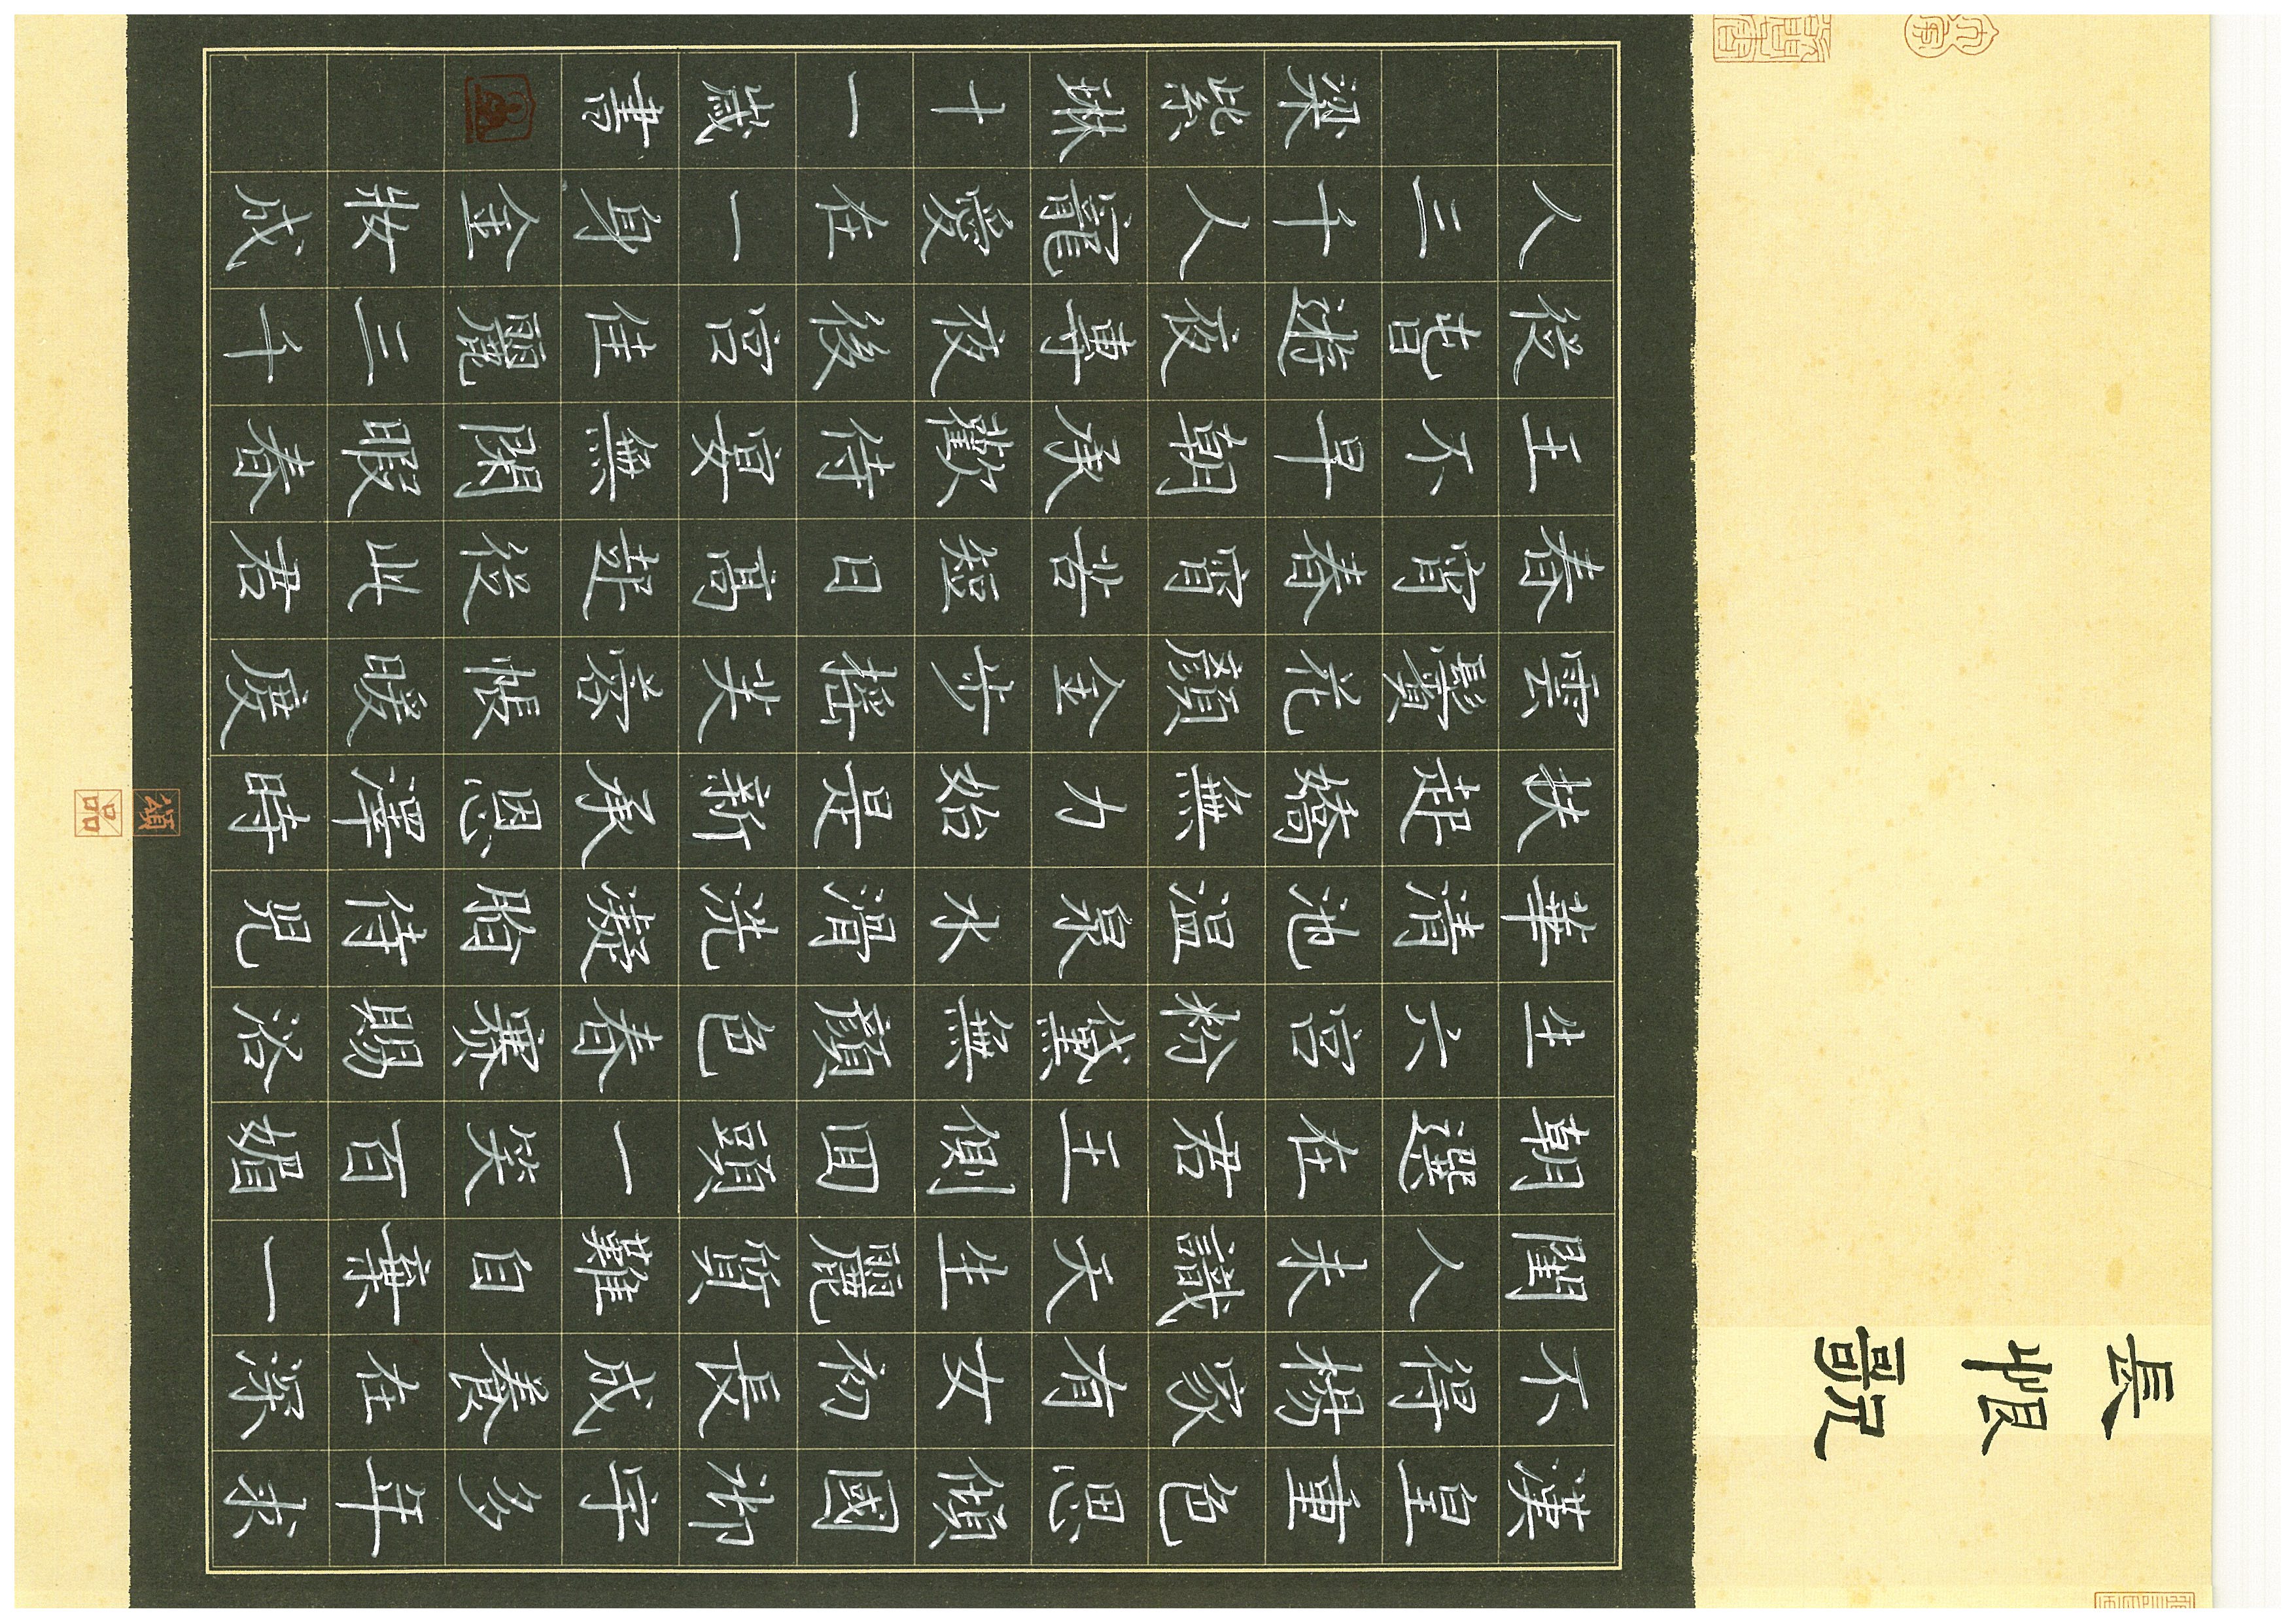 長恨歌
漢皇重色思傾國御宇多年求
不得楊家有女初長成養在深
閨人未識天生麗質難自棄一
朝選在君王側回頭一笑百媚
生六宮粉黛無顏色春寒賜浴
華清池温泉水滑洗凝脂侍兒
扶起嬌無力始是新承恩澤時
雲鬢花顏金步搖芙蓉帳暖度
春宵春宵苦短日高起從此君
王不早朝承歡侍宴無閑暇春
從旾遊夜專夜後宮佳麗三千
人三千人寵愛在一身金妝成
梁紫琳十一歲書